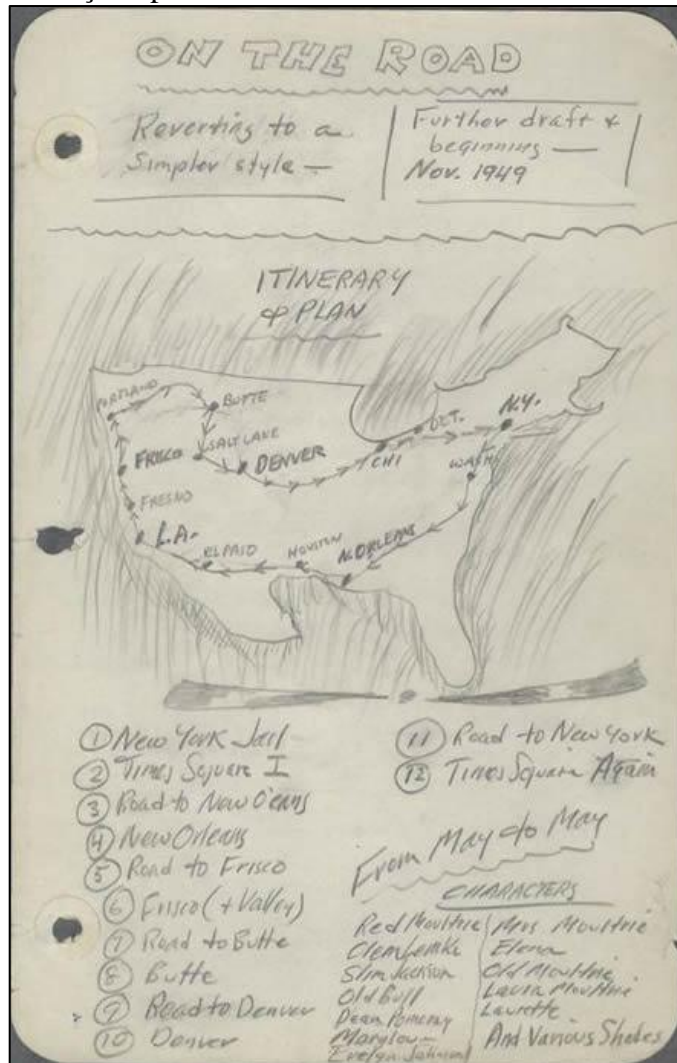 ON THE ROAD
Reverting to a
Simpler style —
Further draft &
beginning —
Nov. 1949
ITINERARY
& PLAN
PORTLAND
BUTTE
DET.
N.Y.
FRISCO
SALT LAKE
DENVER
CHI
WASH.
FRESNO
L.A.
EL PASO
HOUSTON
N. ORLEANS
① New York Jail
② Times Square I
③ Road to New O'leans
④ New Orleans
⑤ Road to Frisco
⑥ Frisco (+ Valley)
⑦ Road to Butte
⑧ Butte
⑨ Road to Denver
⑩ Denver
⑪ Road to New York
⑫ Times Square Again
From May to May
CHARACTERS
Red Moultrie
Clem Lemke
Slim Jackson
Old Bull
Dean Pomeray
Marylou —
Evelyn Johnson
Mrs Moultrie
Elena
Old Moultrie
Laura Moultrie
Laurette
And Various Shades